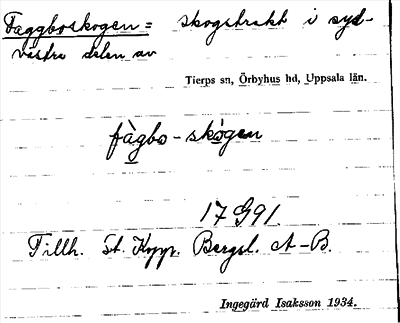 Faggboskogen = skogstrakt i syd-
västra delen av
Tierps sn, Örbyhus hd, Uppsala län.
fàgbo - skògen
17 G91.
Tillh. St. Kopp. Bergsl. A-B.
Ingegärd Isaksson 1934.